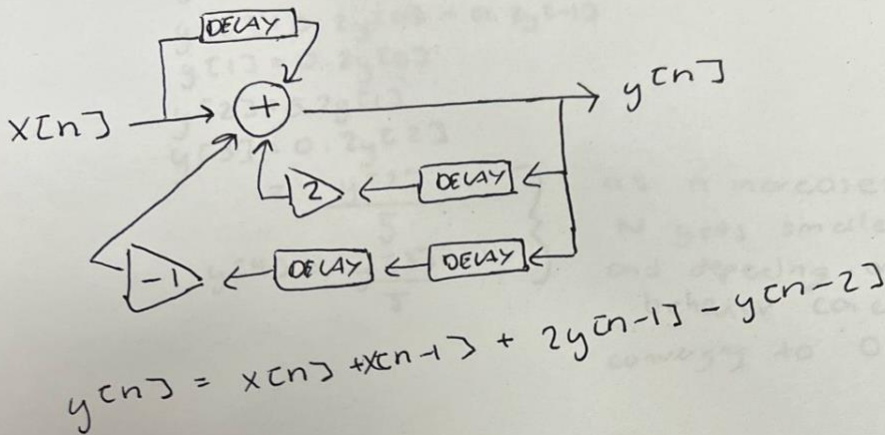 DELAY
x[n]
+
y[n]
2
DELAY
-1
DELAY
DELAY
y[n] = x[n] +x[n-1] + 2y[n-1] - y[n-2]